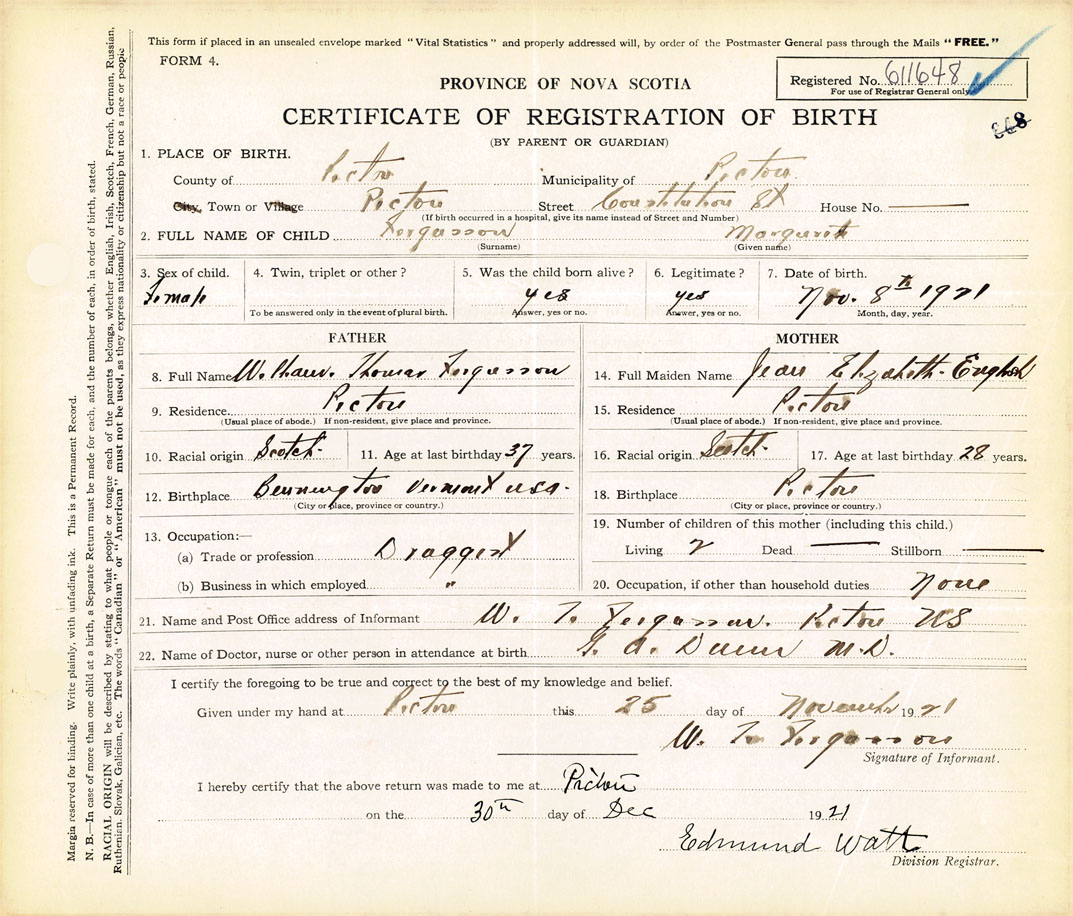 This form if placed in an unsealed envelope marked "Vital Statistics" and properly addressed will, by order of the Postmaster General pass through the Mails "FREE."
FORM 4.
Registered No. 611648
For use of Registrar General only
PROVINCE OF NOVA SCOTIA
CERTIFICATE OF REGISTRATION OF BIRTH
868
(BY PARENT OR GUARDIAN)
1. PLACE OF BIRTH.
County of Pictou Municipality of Pictou
City, Town or Village Pictou Street Constitution St House No.
(If birth occurred in a hospital, give its name instead of Street and Number)
2. FULL NAME OF CHILD Fergusson Margaret
(Surname) (Given name)
3. Sex of child. 4. Twin, triplet or other? 5. Was the child born alive? 6. Legitimate? 7. Date of birth.
Female yes yes Nov. 8th 1921
To be answered only in the event of plural birth. Answer, yes or no. Answer, yes or no. Month, day, year.
FATHER MOTHER
8. Full Name William Thomas Fergusson 14. Full Maiden Name Jean Elizabeth English
9. Residence Pictou 15. Residence Pictou
(Usual place of abode.) If non-resident, give place and province. (Usual place of abode.) If non-resident, give place and province.
10. Racial origin Scotch 11. Age at last birthday 37 years. 16. Racial origin Scotch 17. Age at last birthday 28 years.
12. Birthplace Bennington Vermont USA. 18. Birthplace Pictou
(City or place, province or country.) (City or place, province or country.)
13. Occupation:— 19. Number of children of this mother (including this child.)
(a) Trade or profession Druggist Living 2 Dead Stillborn
(b) Business in which employed " 20. Occupation, if other than household duties None
21. Name and Post Office address of Informant W. T. Fergusson. Pictou NS
22. Name of Doctor, nurse or other person in attendance at birth M.D.
I certify the foregoing to be true and correct to the best of my knowledge and belief.
Given under my hand at Pictou this 25 day of November 1921
W. T. Fergusson
Signature of Informant.
I hereby certify that the above return was made to me at Pictou
on the 30th day of Dec 1921
Edmund Watt
Division Registrar.
Margin reserved for binding. Write plainly, with unfading ink. This is a Permanent Record.
N. B.—In case of more than one child at a birth, a Separate Return must be made for each, and the number of each, in order of birth, stated.
RACIAL ORIGIN will be described by stating to what people or tongue each of the parents belongs, whether English, Irish, Scotch, French, German, Russian,
Ruthenian, Slovak, Galician, etc. The words "Canadian" or "American" must not be used, as they express nationality or citizenship but not a race or people